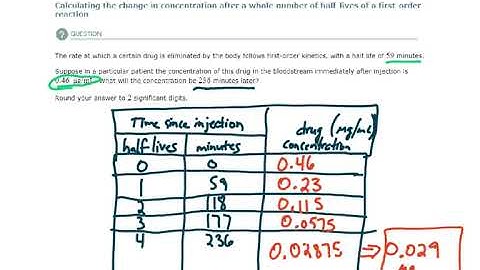 Calculating the change in concentration after a whole number of half-lives of a first-order
reaction
QUESTION
The rate at which a certain drug is eliminated by the body follows first-order kinetics, with a half life of 59 minutes.
Suppose in a particular patient the concentration of this drug in the bloodstream immediately after injection is
0.46 µg/mL. What will the concentration be 236 minutes later?
Round your answer to 2 significant digits.
Time since injection
drug (mg/mL)
half lives minutes concentration
0 0 0.46
1 59 0.23
2 118 0.115
3 177 0.0575
4 236 0.02875 ⇒ 0.029